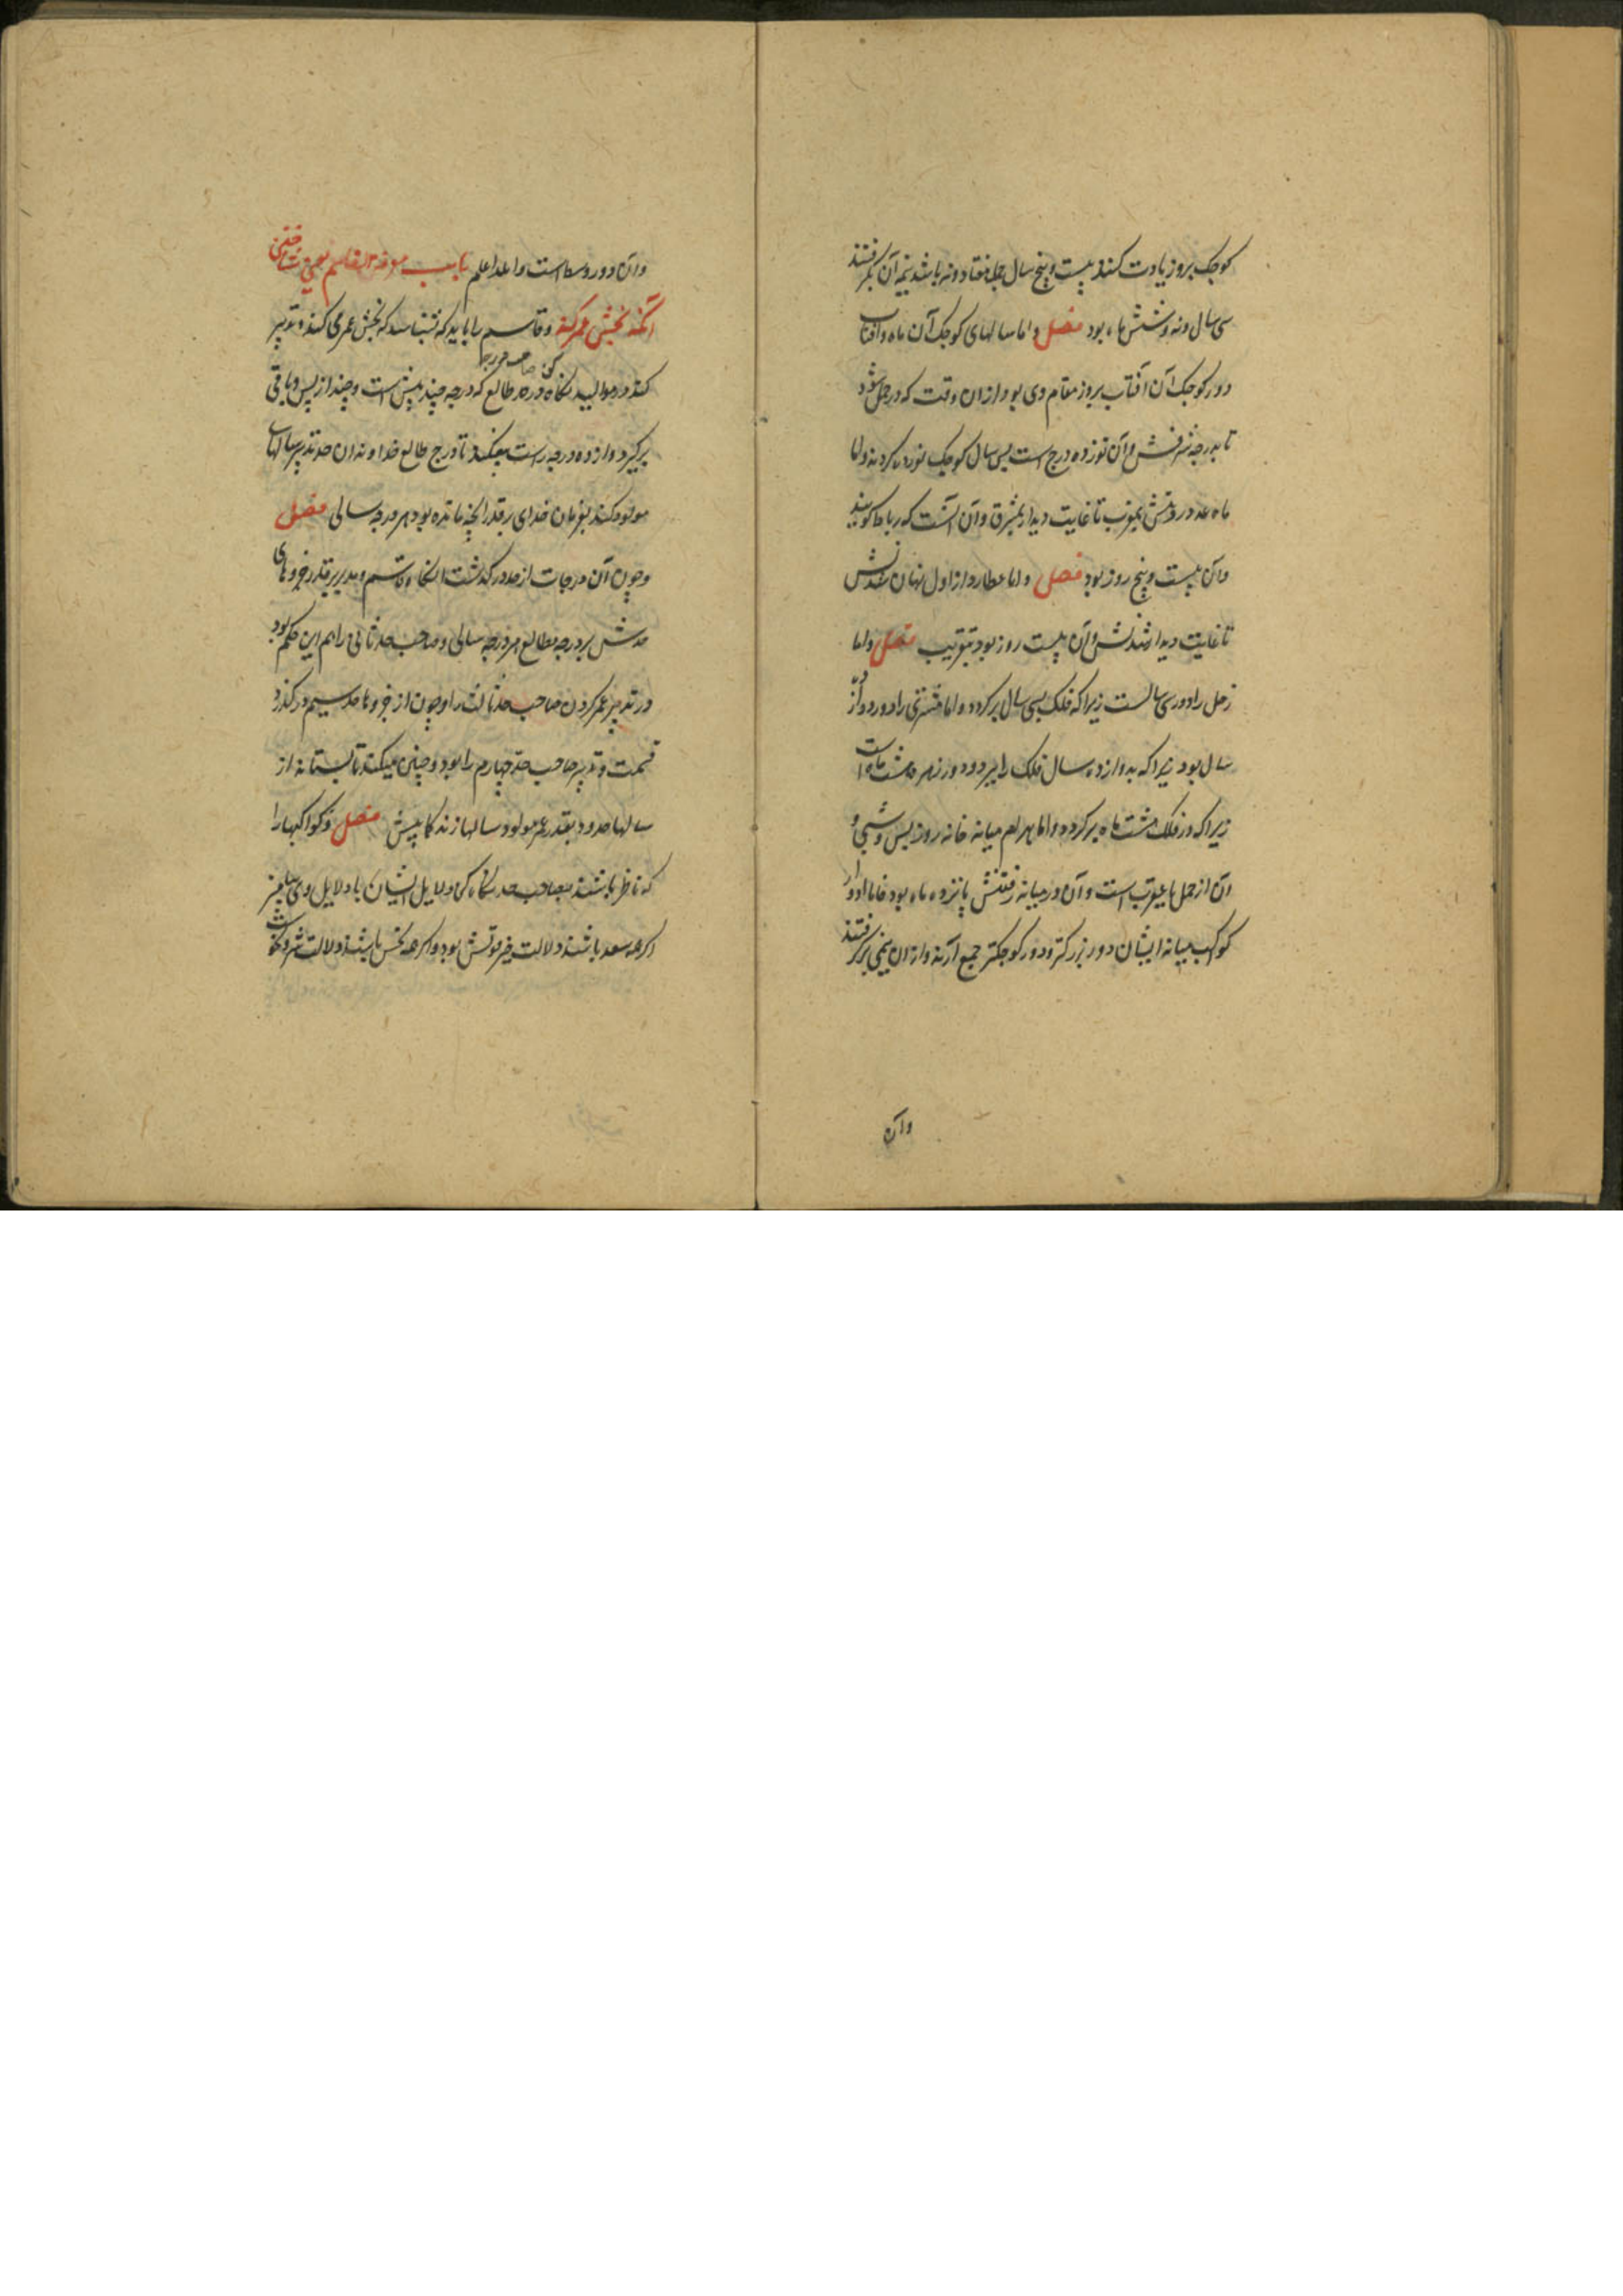 کوچک بروز یادت کنند بیست و پنج سال جمله هفتاد و نه باشد نیمه آن بگرفتند
سی سال و نه و شش ماه بود فصل و اما سالهای کوچک آن ماه و آفتاب
دور کوچک آن آفتاب بروز مقام وی بود از ان وقت که در حمل شود
تا بدرجه شرفش و آن نوزده درج است پس سال کوچک نوزده کردند و
ماه عدد بمغرب تا غایت دیدار بمشرق و آن آنست که
و آن بیست و پنج روز بود فصل و اما عطارد از اول نهان شدنش
تا غایت دیدار شدنش و آن بیست روز بود بتقریب فصل و اما
زحل را دور سی سالست زیرا که فلک بسی سال برگردد و اما مشتری را دور دوازده
سال بود زیرا که بدوازده سال فلک را ببرد و دور زهره هشت ماه است
زیرا که در فلک هشت ماه برگردد و اما بهرام میانه خانه روز پس و شبی و
آن از حمل تا عقربست و آن در میانه رفتنش پانزده ماه بود فاما ادوار
کوکب میانه ایشان دور بزرکتر و دور کوچکتر جمع آرند و از ان نیمی برگرفتند
وآن
وآن دور وسط است والله اعلم باب معرفة القاسم یعنی شناختن
آنکه بخش عمر کند و قاسم را باید که بشناسد که بخش عمر می کند و تدبیر
کند در موالید نگاه در حد طالع که درجه چند پیش است و چند از پس و باقی
برگیرد و از ده درجه راست بفکند تا درج طالع خداوند ان حد تدبیر سالهاء
مولود کند بفرمان خدای بقدر آنچه مانده بود هر درجه سالی فصل
و چون آن درجات از حد در گذشت آنگاه قاسم و مدبر بقدر جزوهای
حدش بر درجه مطالع هر درجه سالی و صاحب حد ثانی را هم این حکم بود
در تدبیر عمر کردن صاحب حد ثالث را و چون از جزوها حد سیم در گذرد
قسمت و تدبیر صاحب حد چهارم را بود و چنین میکند تا بستاند از
سالها حدود بقدر عمر مولود سالها زندگانیش فصل و کواکبها را
که ناظر باشند بصاحب حد نگاه کن و دلایل ایشان با دلایل وی بیامیز
اگر همه سعد باشند دلالت خیر بود و اگر همه نحس باشند دلالت شر و نحوست